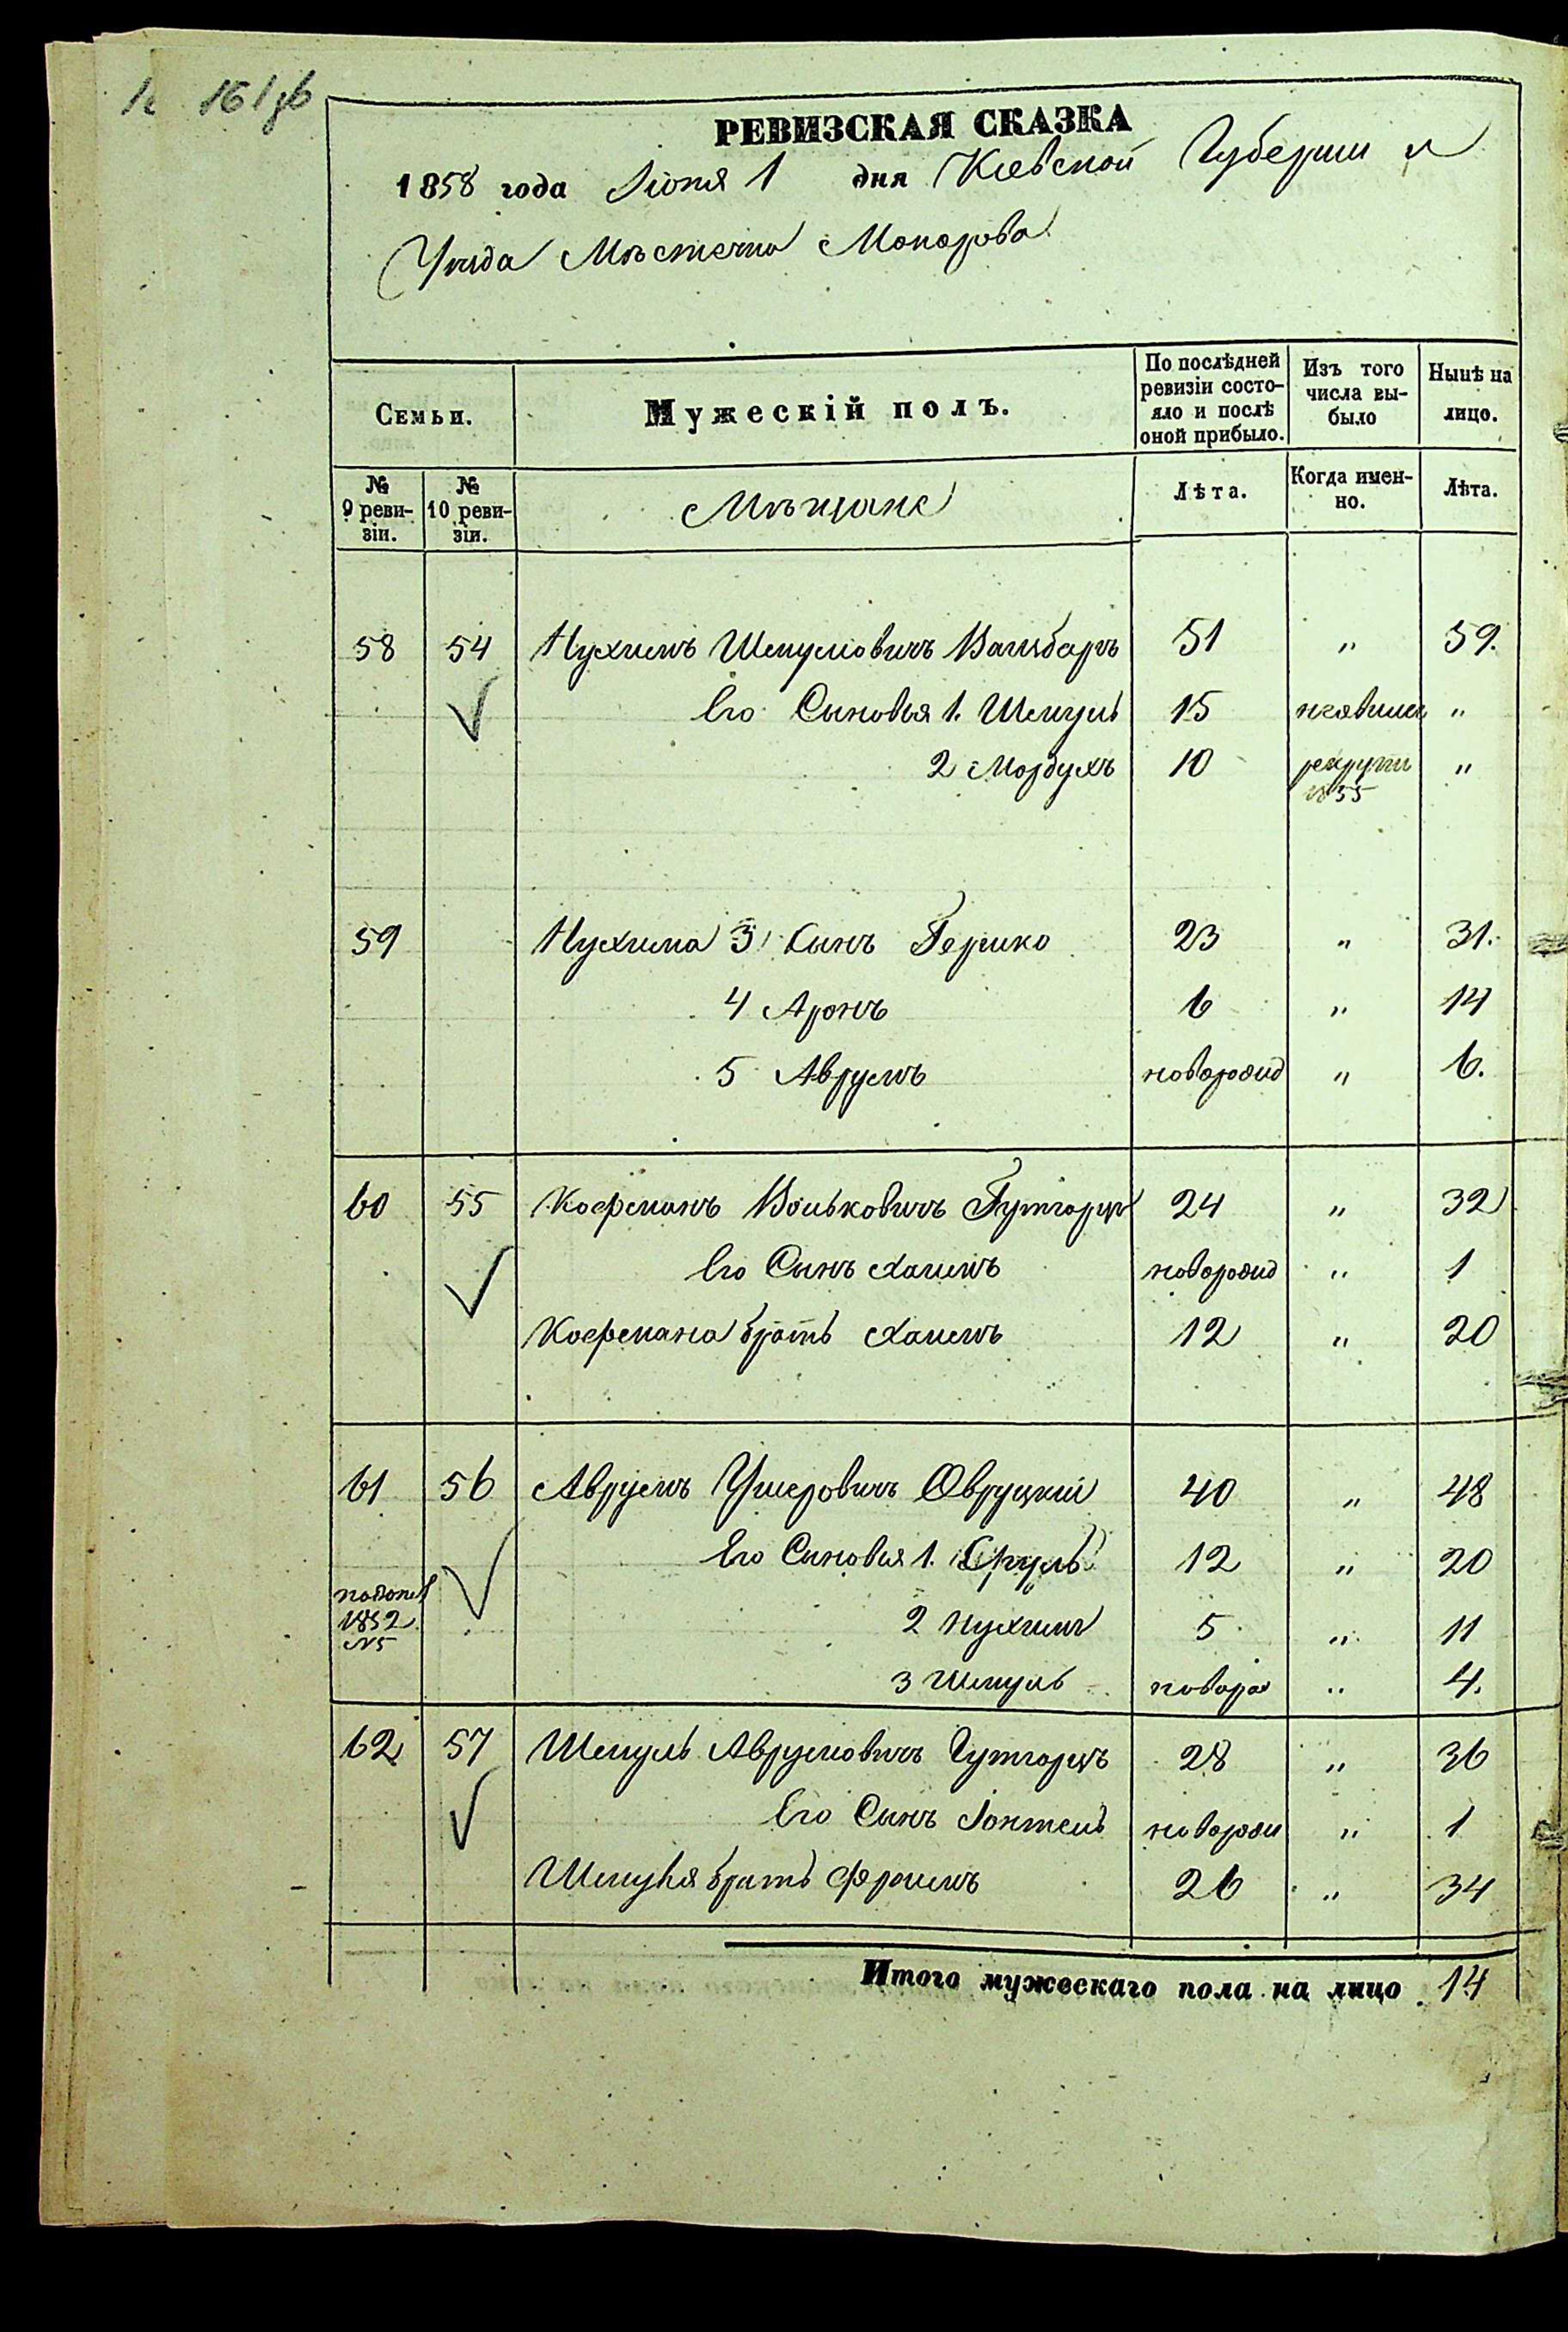 161 об
РЕВИЗСКАЯ СКАЗКА
1858 года Іюня 1 дня Кіевской Губерніи и
Уѣзда Мѣстечка Макарова
Семьи.
Мужескій полъ.
По послѣдней ревизіи состояло и послѣ оной прибыло.
Изъ того числа выбыло
Нынѣ на лицо.
№ 9 ревизіи.
№ 10 ревизіи.
Мѣщане
Лѣта.
Когда именно.
Лѣта.
58 54 Нухимъ Шмулiовичъ 51 " 59.
Его Сыновья 1. Шмуль 15 неявился "
2 Мордухъ 10 рекрутъ 1855 "
59 Нухима 3 Сынъ Гершко 23 " 31.
4 Аронъ 6 " 14
5 Аврумъ новорожд " 6.
60 55 Кофманъ Вольковичъ Гутгарцъ 24 " 32
Его Сынъ Хаимъ новорожд " 1
Кофмана братъ Хаимъ 12 " 20
61 56 Аврумъ Ушеровичъ Овруцкій 40 " 48
Его Сыновья 1. Сруль 12 " 20
1852 №5
2 Нухимъ 5 " 11
3 Шмуль новорож " 4.
62 57 Шмуль Аврумовичъ Гутгарцъ 28 " 36
Его Сынъ Іонтель новорожд " 1
Шмуля братъ Фроимъ 26 " 34
Итого мужескаго пола на лицо 14